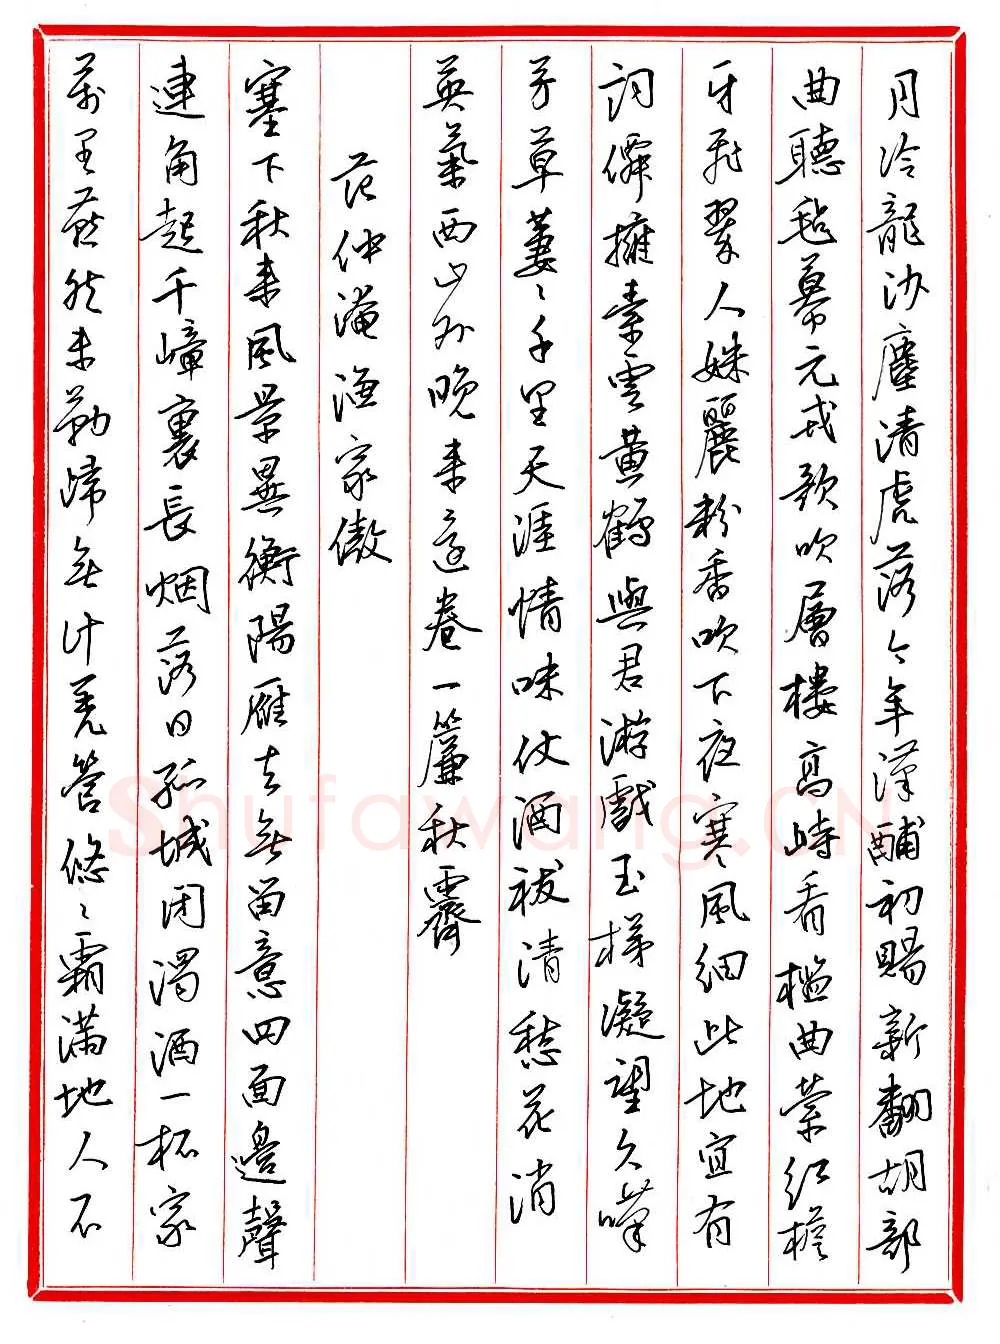 月冷龍沙塵清虎落今年漢酺初賜新翻胡部
曲聽氈幕元戎歌吹層樓高峙看檻曲縈紅檐
牙飛翠人姝麗粉香吹下夜寒風細此地宜有
詞僊擁素雲黄鶴與君游戲玉梯凝望久嘆
芳草萋〻千里天涯情味仗酒祓清愁花消
英氣西山外晚來還卷一簾秋霽
范仲淹漁家傲
塞下秋來風景異衡陽雁去無留意四面邊聲
連角起千嶂裏長烟落日孤城閉濁酒一杯家
萬里燕然未勒歸無計羌管悠〻霜滿地人不
Shufawang.CN